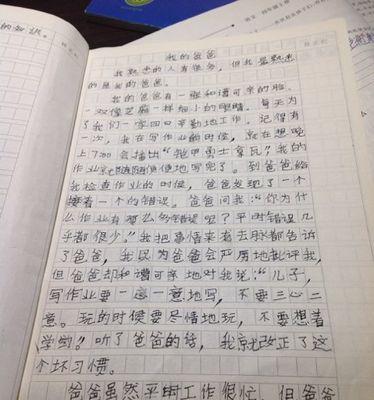 的知识。
我的爸爸
我熟悉的人有很多，但我最熟悉
的是我的爸爸。
我的爸爸有一张和谓可亲的脸，
一双像芝麻一样细小的眼睛。每天为
了我们一家四口辛勤地工作。记得有
一次，我在写作业的时候，就在想晚
上7:00会播出“铠甲勇士拿瓦”我的
作业就随随便便地写完了。到爸爸给
我检查作业的时候，爸爸发现了一个
接着一个的错误。爸爸问我：“你为什
么作业有那么多错误呢？平时错误几
乎都很少。”我把事情来龙去脉都告诉
了爸爸，我以为爸爸会严厉地批评我，
但爸爸却和谓可亲地对我说：“儿子，
写作业要一心一意地写，不要三心二
意。玩的时候要尽情地玩，不要想着
学的。”听了爸爸的话，我就改正了这
个坏习惯。
爸爸虽然平时工作很忙，但爸爸